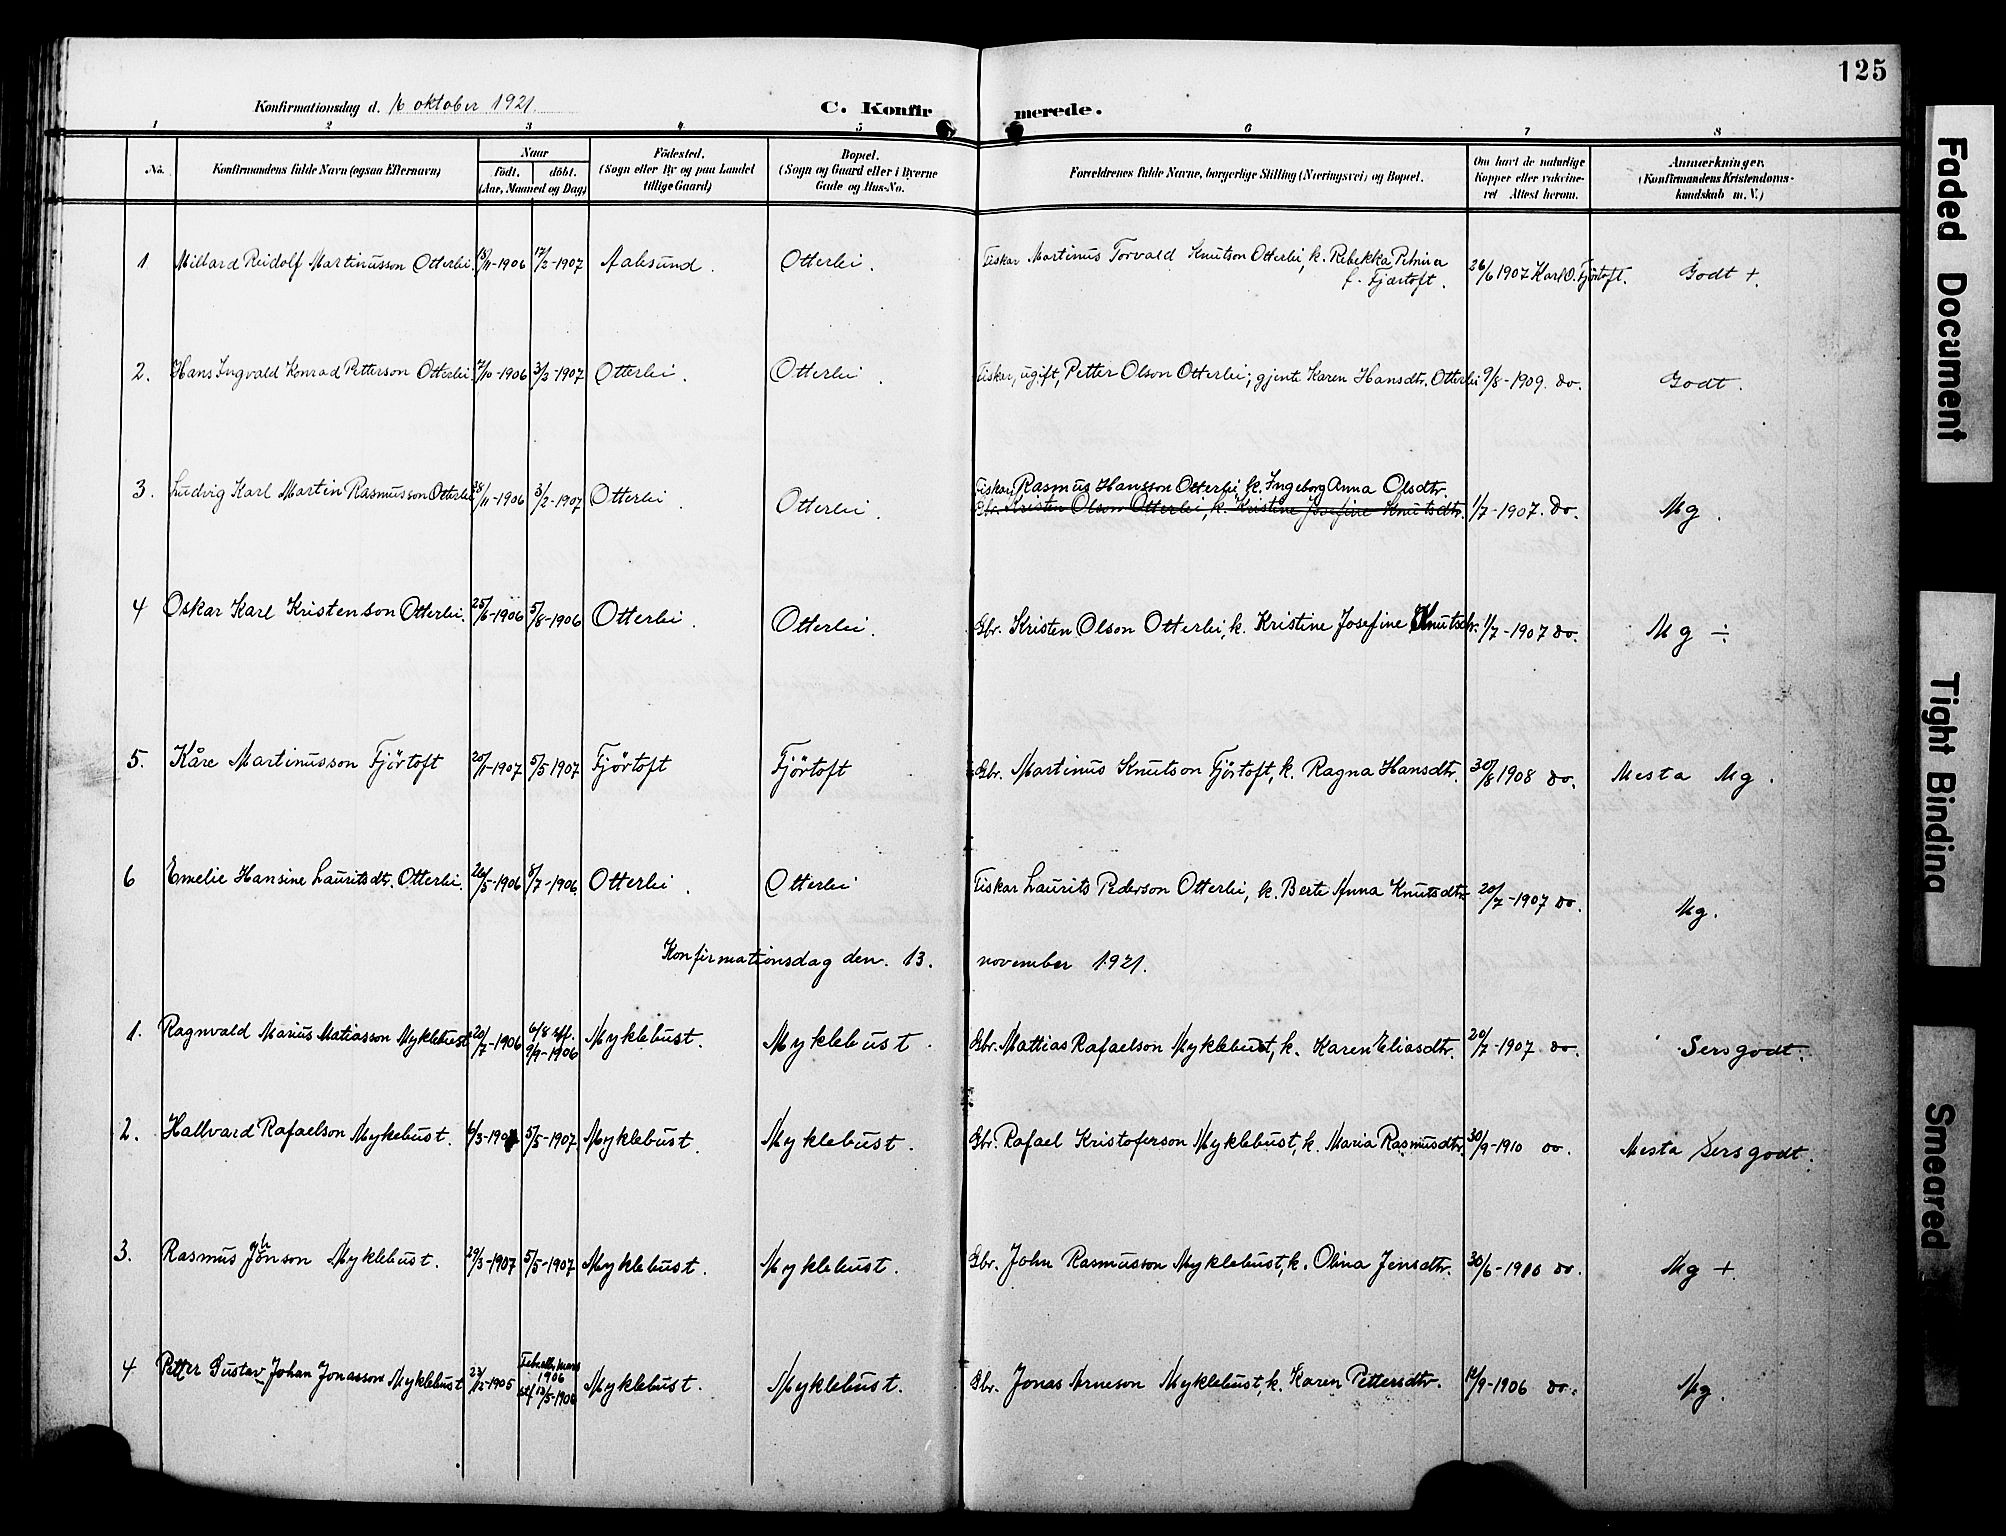 125
Konfirmationsdag d. 16 oktober 1921.
C. Konfirmerede.
1 2 3 4 5 6 7 8
No.
Konfirmandens fulde Navn (ogsaa Efternavn)
Naar
födt. döbt.
(Aar, Maaned og Dag)
Födested.
(Sogn eller By og paa Landet
tillige Gaard)
Bopæl.
(Sogn og Gaard eller i Byerne
Gade og Hus-No.
Forældrenes fulde Navne, borgerlige Stilling (Næringsvei) og Bopæl.
Om havt de naturlige
Kopper eller vakcine-
ret Attest herom.
Anmærkninger.
(Konfirmandens Kristendoms-
kundskab m. V.)
1 Millard Reidolf Martinusson Otterlei. 18/11-1906 17/2-1907 Aalesund. Otterlei. Fiskar Martinus Torvald Knutson Otterlei, k. Rebekka Petrina
f. Fjærtoft. 26/6 1907 Karl O. Fjørtoft. Godt +.
2. Hans Ingvald Konrad Petterson Otterlei 7/10-1906 3/2-1907 Otterlei. Otterlei. Fiskar, ugift, Petter Olson Otterlei; gjente Karen Hansdtr. Otterlei 9/8-1909. do. Godt.
3. Ludvig Karl Martin Rasmusson Otterlei 28/11-1906 3/2-1907 Otterlei. Otterlei. Fiskar Rasmus Hansson Otterlei, k. Ingeborg Anna Olsdtr.
Gbr. Kristen Olson Otterlei, k. Kristine Josefine Knutsdtr. 1/7-1907. do. Mg.
4 Oskar Karl Kristenson Otterlei. 25/6-1906 5/8-1906 Otterlei. Otterlei. Gbr. Kristen Olson Otterlei, k. Kristine Josefine Knutsdr. 1/7-1907 do. Mg ÷
5. Kåre Martinusson Fjörtoft 20/1-1907 5/5 1907 Fjörtoft Fjörtoft Gbr. Martinus Knutson Fjörtoft, k. Ragna Hansdtr. 30/8 1908 do. Mesta Mg.
6 Emelie Hansine Lauritsdtr. Otterlei. 26/5-1906 8/7-1906 Otterlei. Otterlei Fiskar Laurits Pederson Otterlei, k. Berte Anna Knutsdtr. 20/7-1907 do. Mg.
Konfirmationsdag den. 13. november 1921.
1. Ragnvald Marius Matiasson Myklebust 20/7-1906 6/8 stf. 9/9-1906 Myklebust. Myklebust. Gbr. Mattias Rafaelson Myklebust, k. Karen Eliasdtr. 20/7-1907 do. Sers godt.
2. Hallvard Rafaelson Mykebust. 6/3-1907 5/5-1907. Myklebust. Myklebust. Gbr. Rafael Kristoferson Myklebust, k. Maria Rasmusdtr. 30/9-1910 do. Mesta sers godt.
3. Rasmus Johnson Myklebust. 29/3-1907 5/5-1907 Myklebust. Myklebust. Gbr. John Rasmusson Myklebust, k. Olina Jensdtr. 30/6-1910 do. Mg +
4 Petter Gustav Johan Jonasson Myklebust 23/12-1905 Feb. elle mars
1906
stf 13/5-1906 Myklebust. Myklebust. Gbr. Jonas Arneson Myklebust, k. Karen Pettersdtr. 12/9-1906 do. Mg.
Faded Document
Tight Binding
Smeared